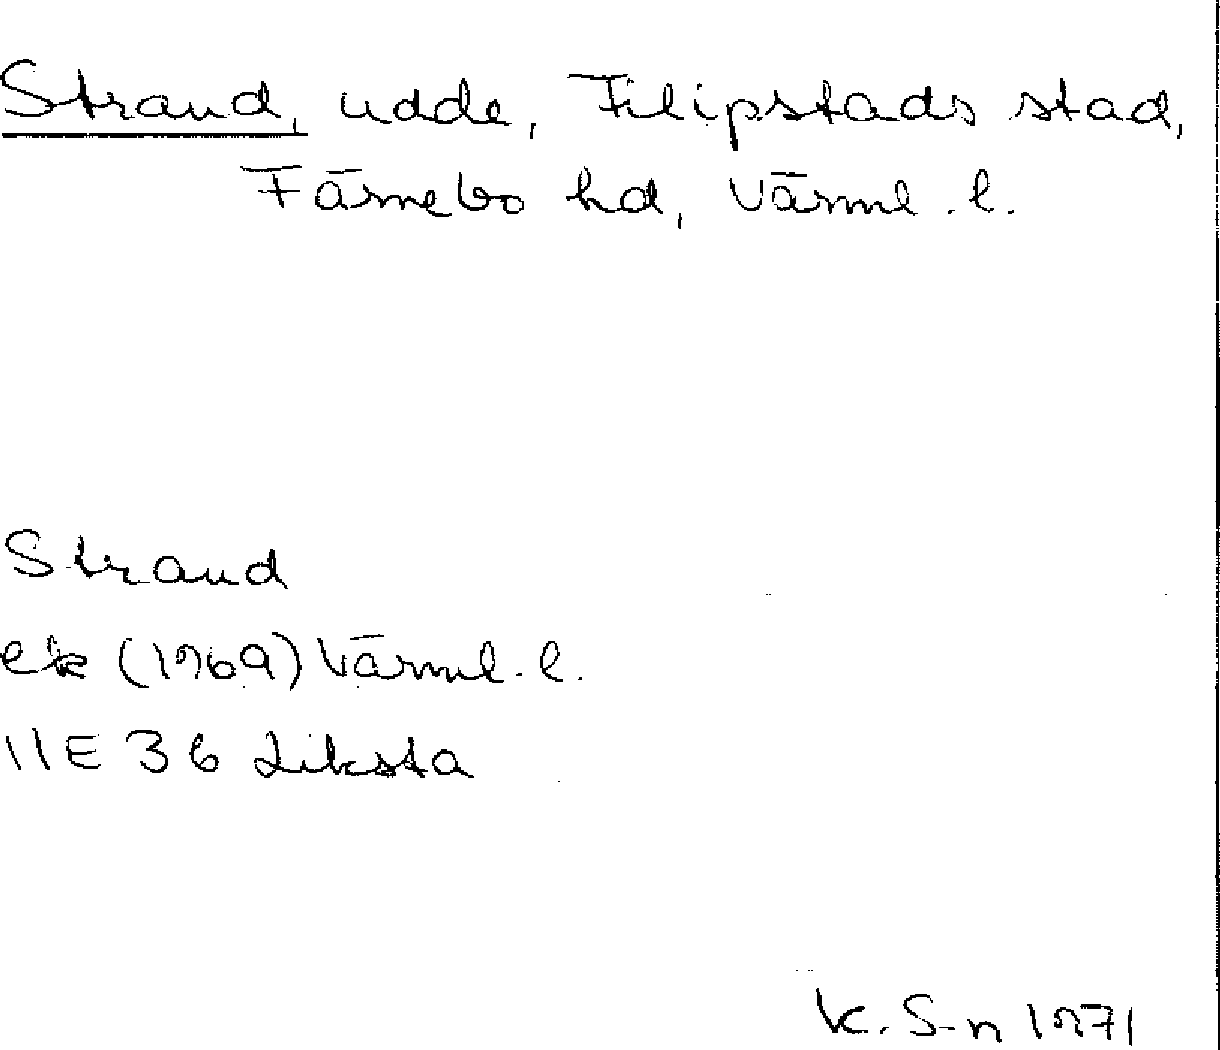 Strand, udde, Filipstads stad,
Färnebo hd, Värml. l.
Strand
ek (1969) Värml. l.
11E 36 Liksta
K. S-n 1971